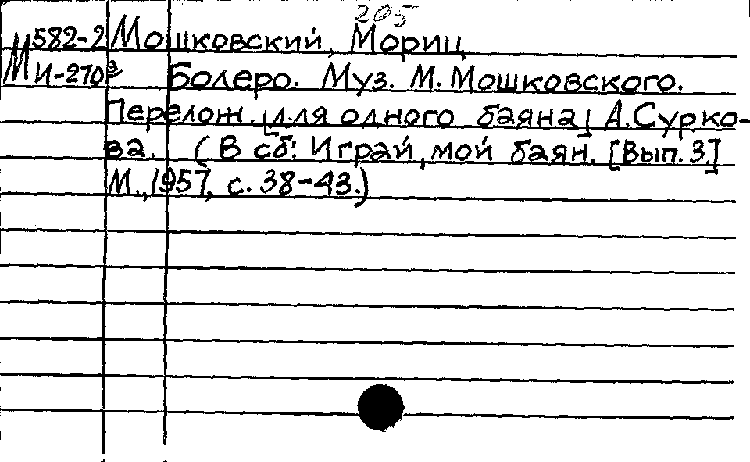 205
М 582-2 Мошковский, Мориц
И-270³ Болеро. Муз. М. Мошковского.
Перелож. [для одного баяна] А. Сурко-
ва. (В сб: Играй, мой баян. [Вып. 3.]
М., 1957, с. 38-43.)